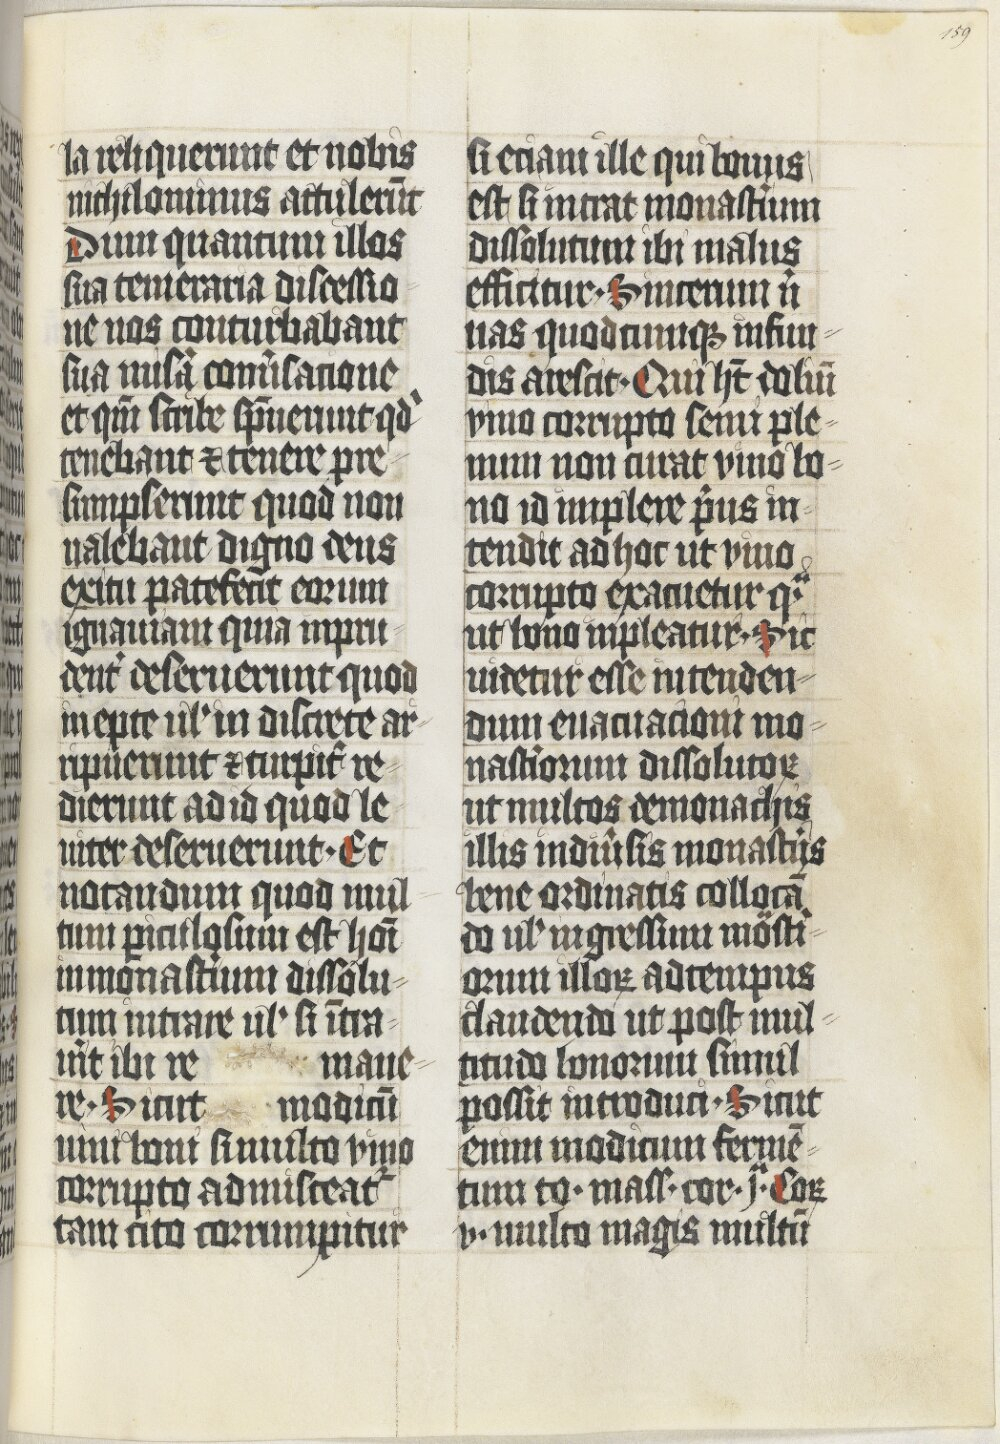 159
la reliquerunt et nobis
nichilominus attulerūt
Dum quantum illos
sua temeraria discessio
ne nos conturbabant
sua misa᷑ conũsacione
et qm̄ scribe sp̄uerunt qd᷒
tenebant ⁊ tenere pre-
sumpserunt quod non
ualebant digno deus
exitu patefecit eorum
ignauiam quia inpru-
dent᷑ deseruerunt quod
inepte ul᷒ in discrete ar-
ripuerunt ⁊ turpit᷑ re-
dierunt ad id quod le-
uiter deseruerunt· Et
notandum quod mul-
tum ꝑiculosum est hoī
in monast᷑ium dissolu-
tum intrare ul᷒ si ītra-
uīt ibi re mane-
re· Sicut modicū
uini boni si multo vino
corrupto admisceat᷑
tam cito corrumpitur
si etiam ille qui bonus
est si intrat monast᷑ium
dissolutum ibi malus
efficitur· Sincerum n̄
uas quodcumqꝫ infun-
dis acescit· Qui ht̄ doliū
vino corrupto semi ple-
num non curat vino bo-
no id implere p᷑us in-
tendit ad hoc ut vino
corrupto exacuetur
ut bono inpleatur· Sic
uidetur esse intenden-
dum euacuacioni mo-
nast᷑iorum dissolutoꝝ
ut multos demonachis
illis in diũsis monast᷑ijs
bene ordinatis collocā-
do ul᷒ ingressum mōst᷑i-
orum illoꝝ ad tempus
claudendo ut post mul-
titudo bonorum simul
possit introduci· Sicut
enim modicum fermē-
tum to· mass· cor· j᷑· Coꝝ
v· multo magis multū